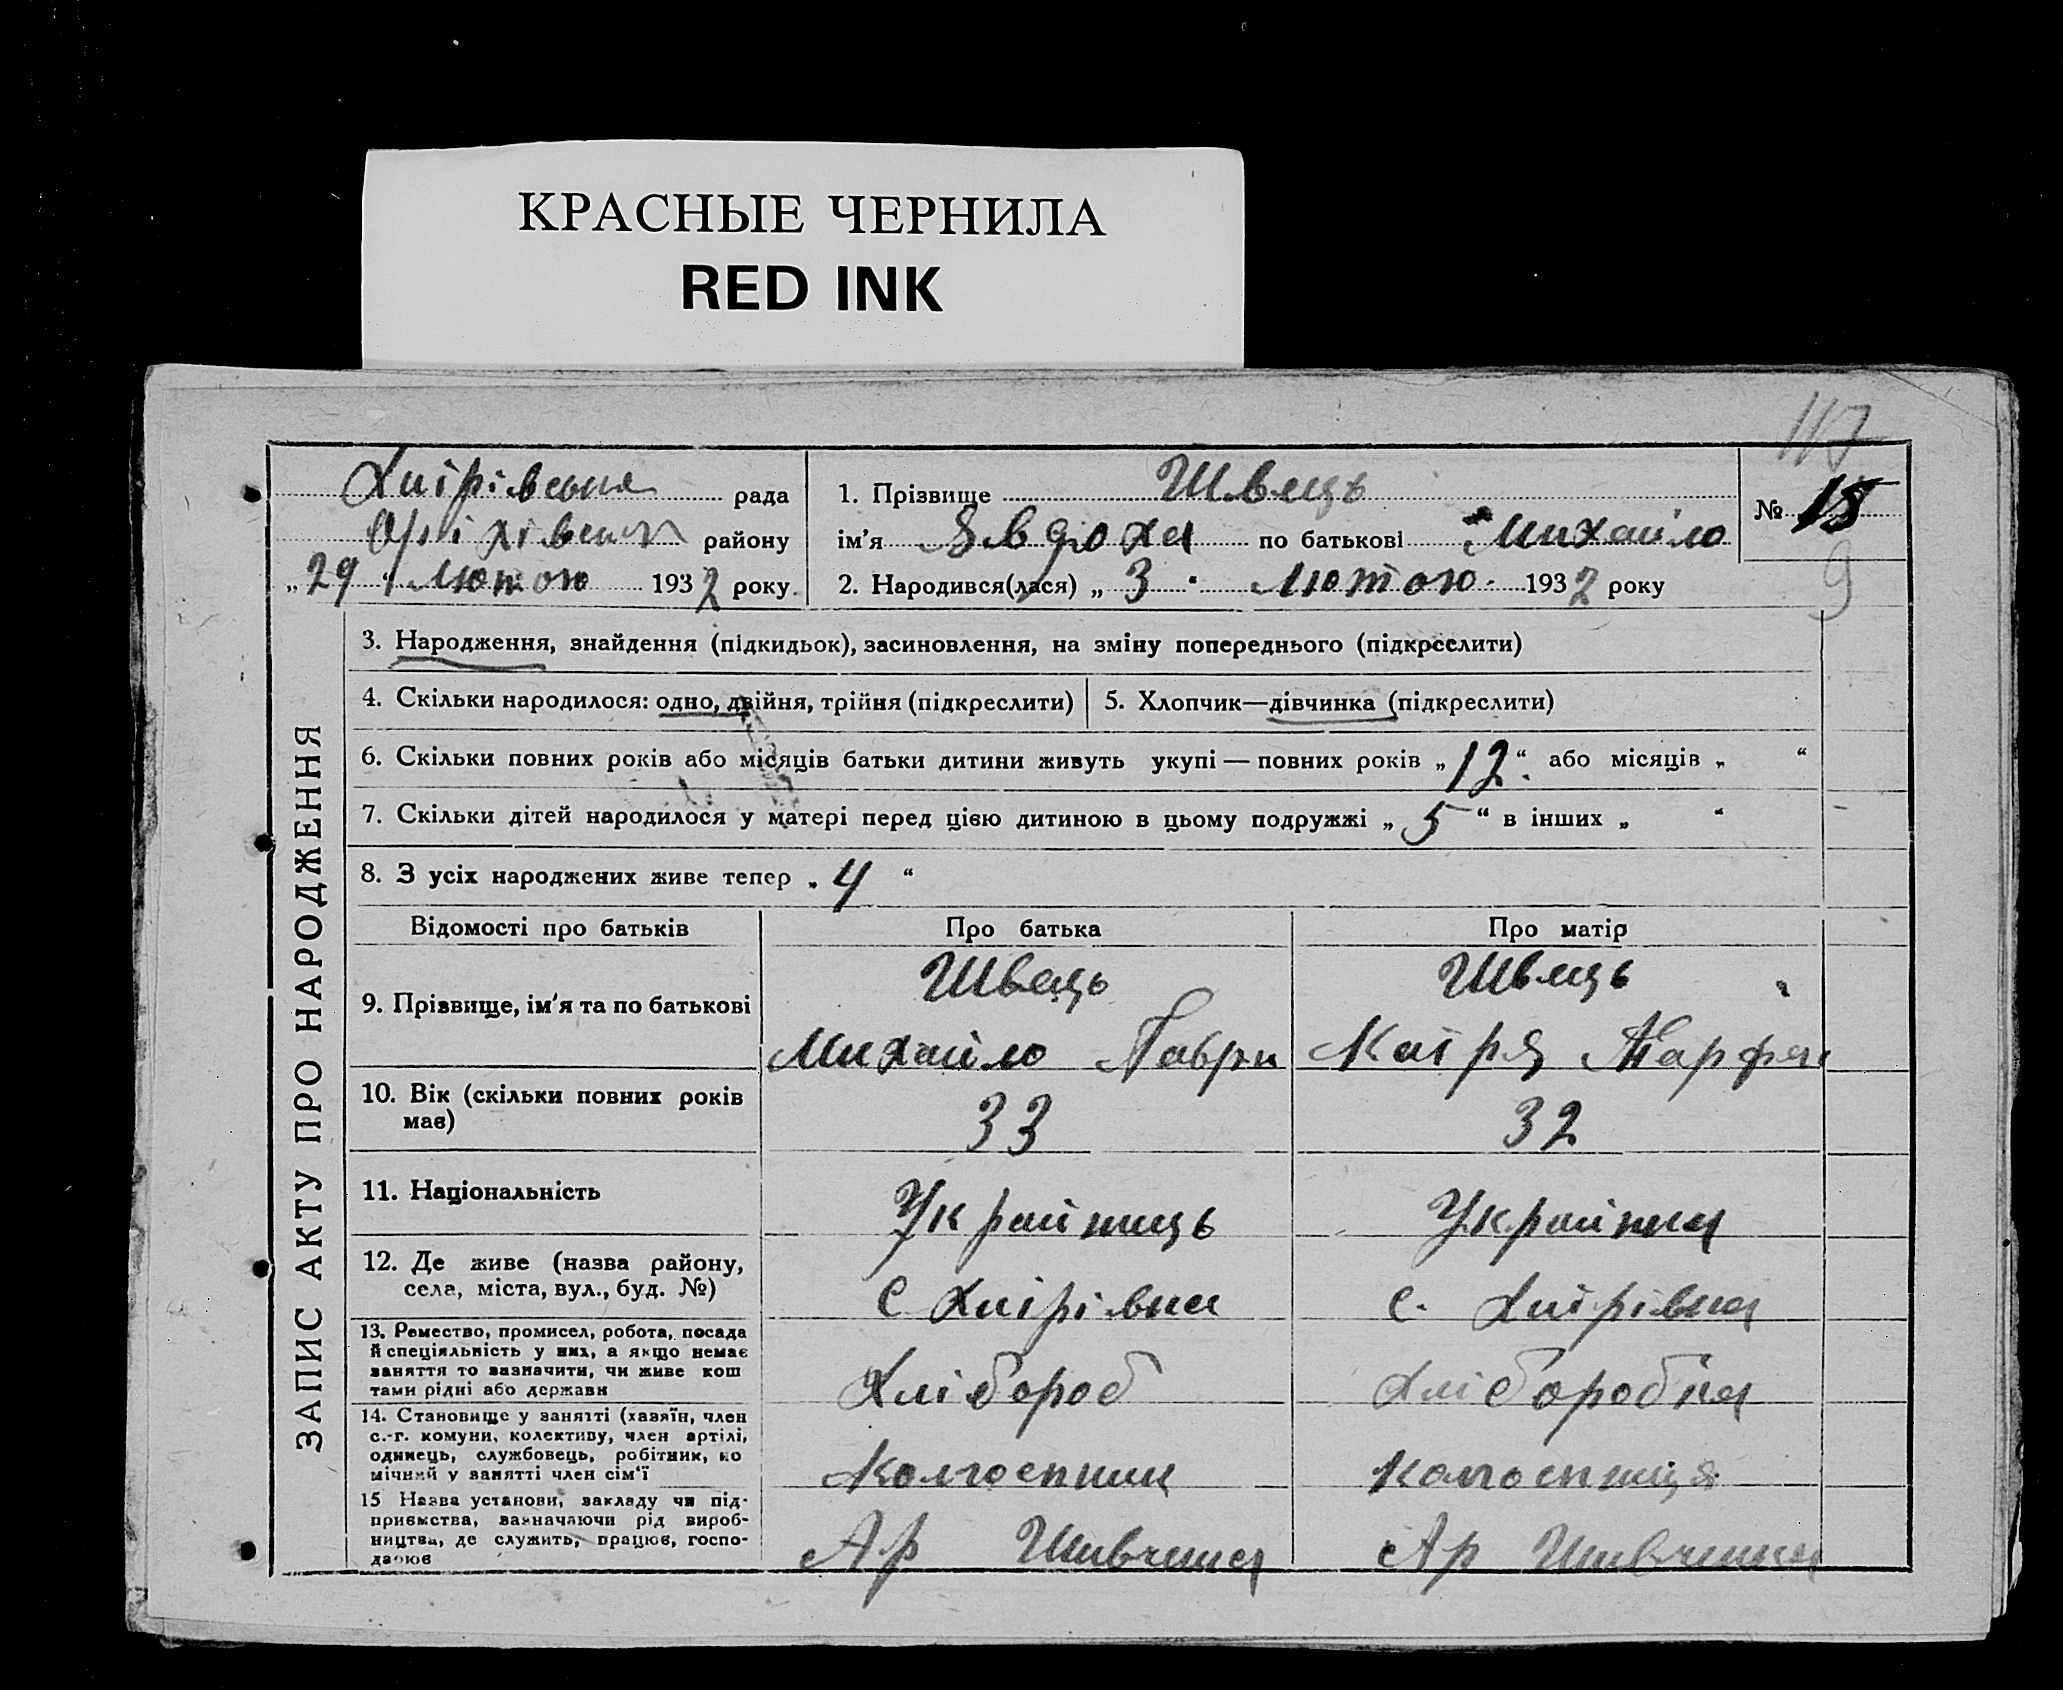 КРАСНЫЕ ЧЕРНИЛА
RED INK
117
Хитрівська рада
Оріхівськ району
„29“ Лютого 1932 року
1. Прізвище Швець
ім’я Явдоха по батькові Михайло
2. Народився(лася) „3“ Лютого 1932 року
№ 15
9
ЗАПИС АКТУ ПРО НАРОДЖЕННЯ
3. Народження, знайдення (підкидьок), засиновлення, на зміну попереднього (підкреслити)
4. Скільки народилося: одно, двійня, трійня (підкреслити)
5. Хлопчик—дівчинка (підкреслити)
6. Скільки повних років або місяців батьки дитини живуть укупі — повних років „12“ або місяців „ “
7. Скільки дітей народилося у матері перед цією дитиною в цьому подружжі „5“ в інших „ “
8. З усіх народжених живе тепер „4“
Відомості про батьків Про батька Про матір
9. Прізвище, ім’я та по батькові
Швець
Михайло Гаври
Швець
10. Вік (скільки повних років
має)
33
32
11. Національність
Українець
Українка
12. Де живе (назва району,
села, міста, вул., буд. №)
с
с.
13. Ремество, промисел, робота, посада
й спеціяльність у них, а якщо немає
заняття то вазначити, чи живе кош
тами рідні або держави
Хлібороб
Хліборобка
14. Становище у занятті (хазяїн, член
с.-г. комуни, колективу, член артілі,
одинець, службовець, робітник, по
мічний у занятті член сім’ї
Колгоспник
Колгоспниця
15 Назва установи, закладу чи під-
приємства, вазначаючи рід вироб-
ництва, де служить, працює, госпо-
дарює
Ар Шевченка
Ар Шевченка